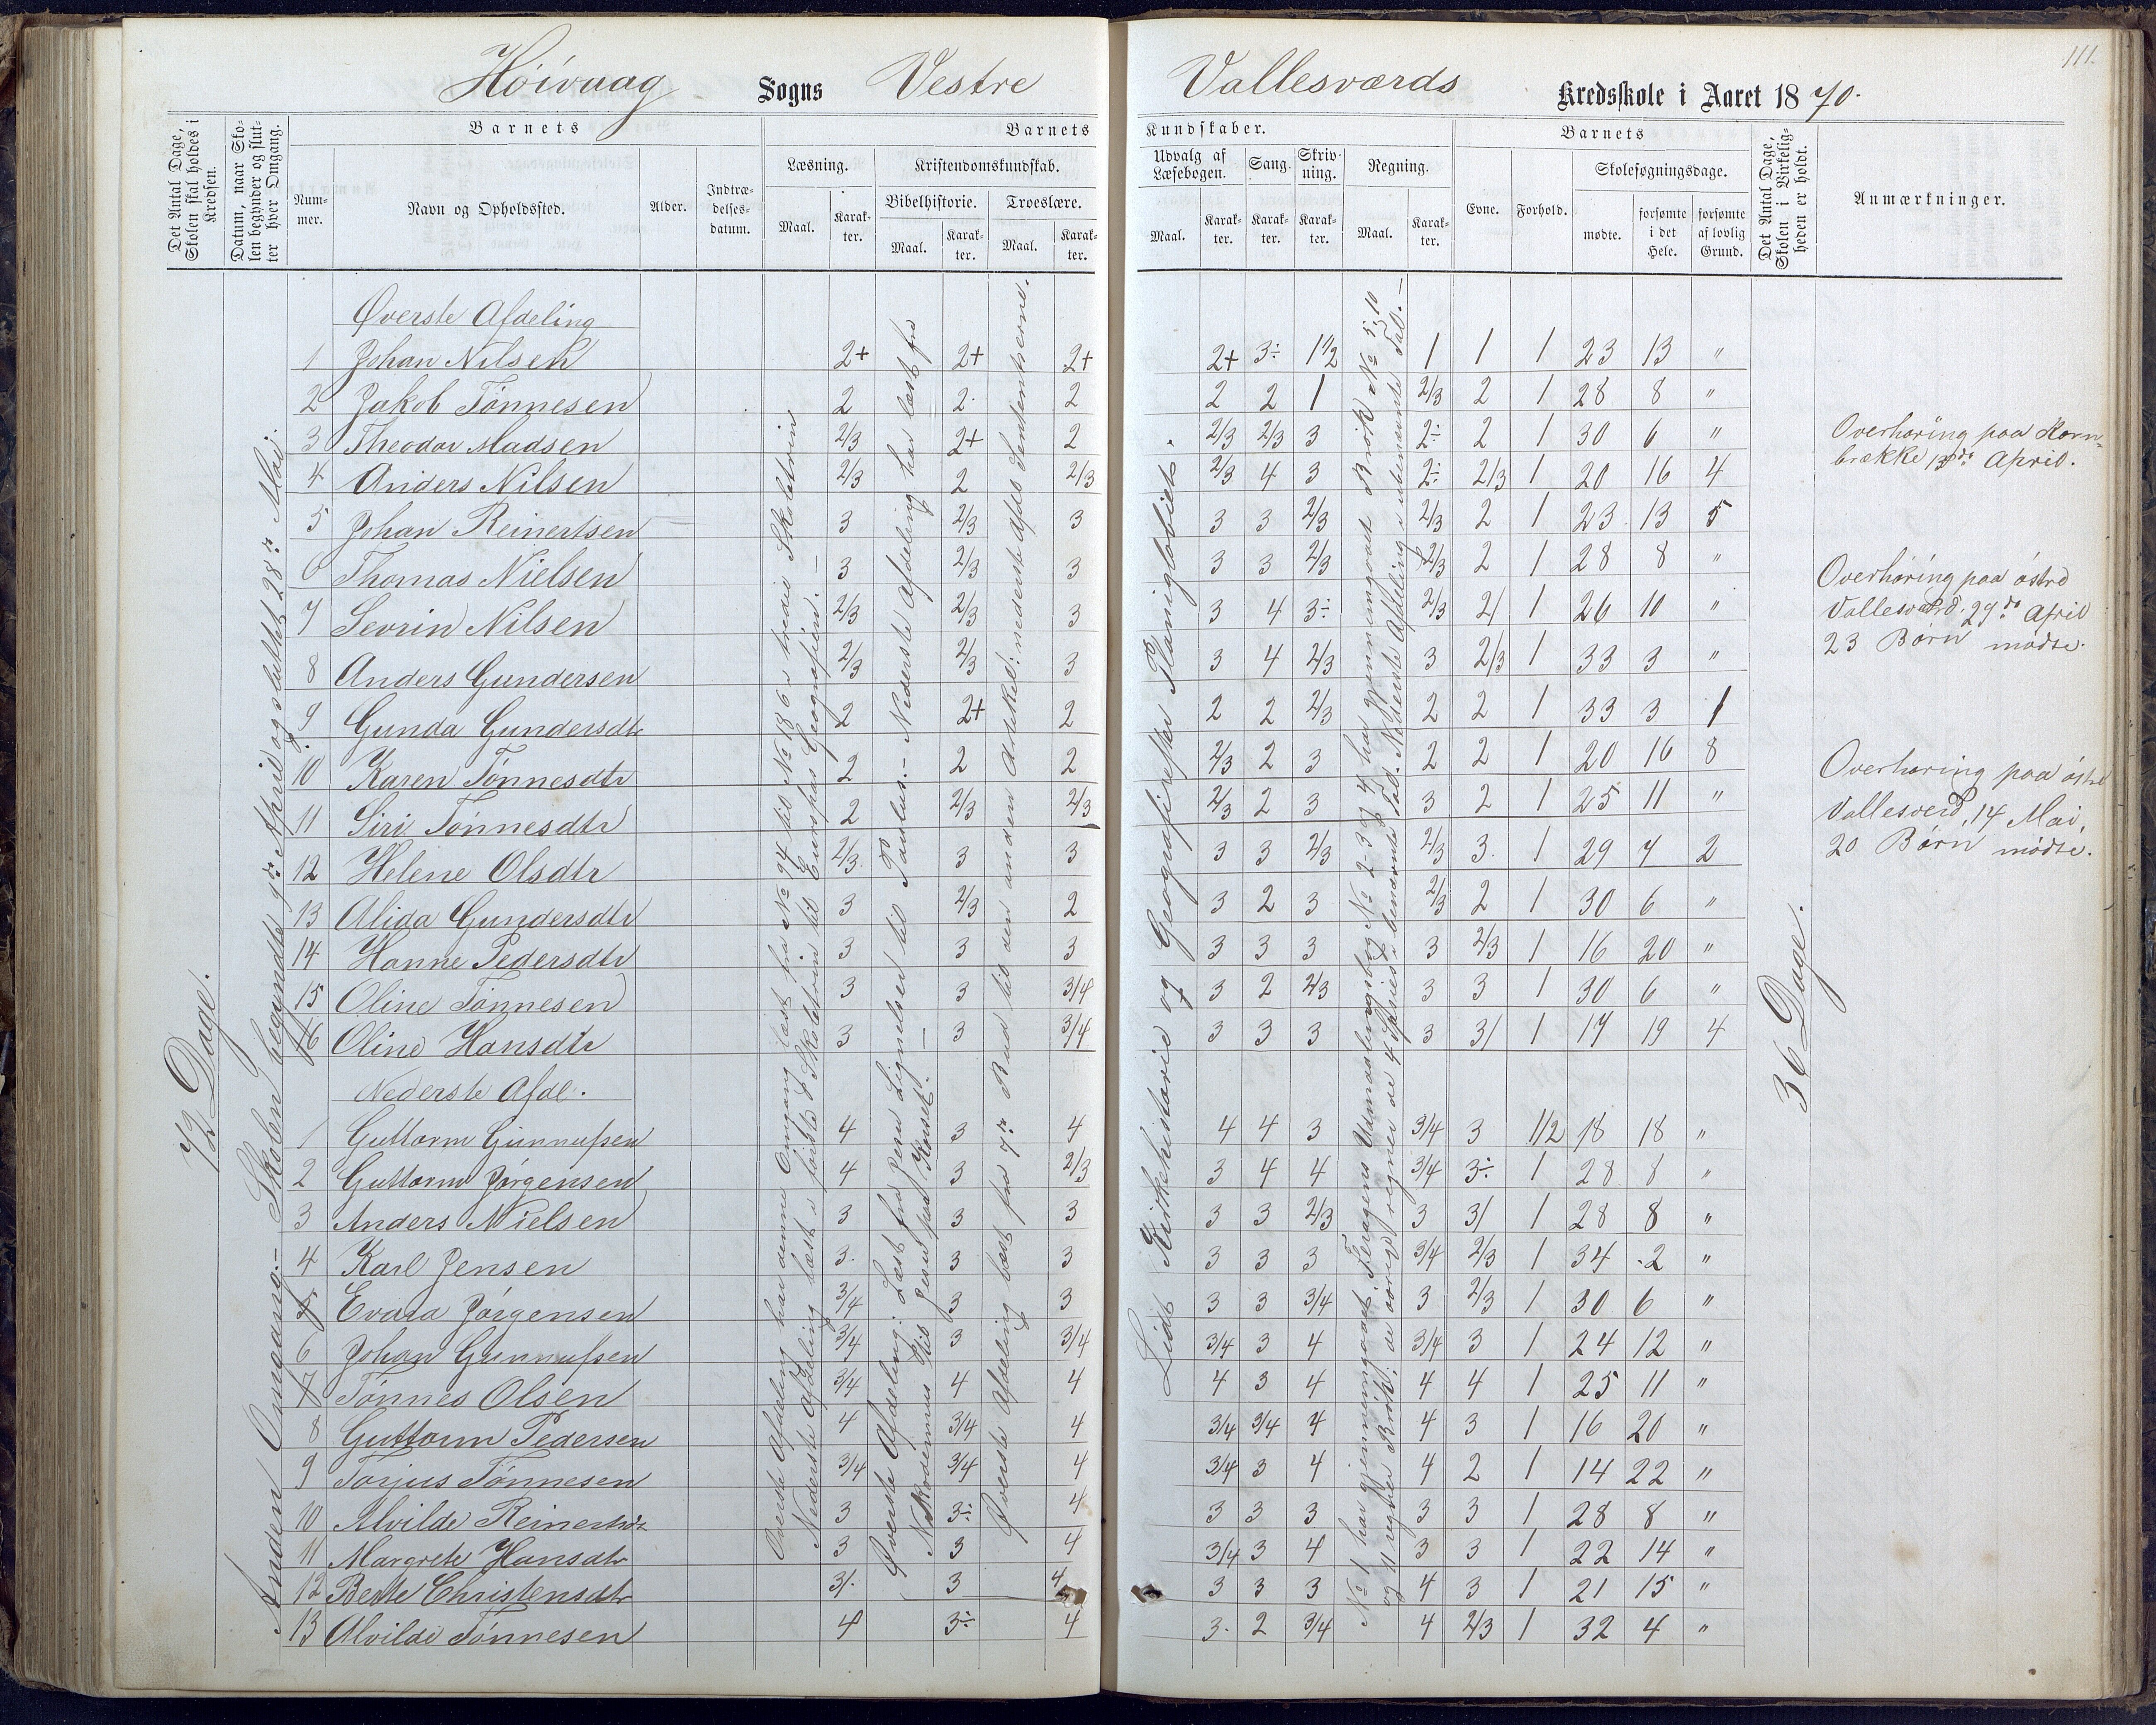 111.
Höivaag Sogns Vestre Vallesværds Kredsskole i Aaret 1870.
Det Antal Dage, Skolen skal holdes i Kredsen.
Datum, naar Skolen begynder og slutter hver Omgang.
Barnets
Nummer.
Navn og Opholdssted.
Alder.
Indtrædelsesdatum.
Barnets Kundskaber.
Læsning.
Maal. Karakter.
Kristendomskundskab.
Bibelhistorie.
Maal. Karakter.
Troeslære.
Maal. Karakter.
Udvalg af Læsebogen.
Maal. Karakter.
Sang.
Karakter.
Skrivning.
Karakter.
Regning.
Maal. Karakter.
Barnets
Evne. Forhold.
Skolesøgningsdage.
mødte. forsømte i det Hele. forsømte af lovlig Grund.
Det Antal Dage, Skolen i Virkeligheden er holdt.
Anmærkninger.
72 Dage.
Anden Omgang.- Skolen begyndte 9de April og sluttet 28de Mai.
Øverste Afdeling
1 Johan Nilsen 2+ 2+ 2+ 2+ 3÷ 1 1/2 1 1 1 23 13 "
2 Jakob Tönnesen 2 2 2 2 2 1 2/3 2 1 28 8 "
3 Theodor Madsen 2/3 2+ 2 2/3 2/3 3 2÷ 2 1 30 6 "
4 Anders Nilsen 2/3 2 2/3 2/3 4 3 2÷ 2/3 1 20 16 4
5 Johan Reinertsen 3 2/3 3 3 3 2/3 2/3 2 1 23 13 5
6 Thomas Nielsen 3 2/3 3 3 3 2/3 2/3 2 1 28 8 "
7 Sevrin Nilsen 2/3 2/3 3 3 4 3÷ 2/3 2/ 1 26 10 "
8 Anders Gundersen 2/3 2/3 3 3 4 2/3 3 2/3 1 33 3 "
9 Gunda Gundersdtr 2 2+ 2 2 2 2/3 2 2 1 33 3 1
10 Karen Tönnesdtr 2 2 2 2/3 2 3 2 2 1 20 16 8
11 Siri Tönnesdtr 2 2/3 2/3 2/3 2 3 3 2 1 25 11 "
12 Helene Olsdtr 2/3 3 3 3 3 2/3 2/3 3 1 29 7 2
13 Alida Gundersdtr 3 2/3 2 3 2 3 2/3 2 1 30 6 "
14 Hanne Pedersdtr 3 3 3 3 3 3 3 2/3 1 16 20 "
15 Oline Tönnesen 3 3 3/4 3 2 2/3 3 3 1 30 6 "
16 Oline Hansdtr 3 3 3/4 3 3 3 3 3/ 1 17 19 4
Nederste Afdl.
1 Guttorm Gunnufsen 4 3 4 4 4 3 3/4 3 1/2 18 18 "
2 Guttorm Jörgensen 4 3 2/3 3 4 4 3/4 3÷ 1 28 8 "
3 Anders Nielsen 3 3 3 3 3 2/3 3 3/ 1 28 8 "
4 Karl Jensen 3 3 3 3 3 3 3/4 2/3 1 34 2 "
5 Evara Jörgensen 3/4 3 3 3 3 3/4 3 2/3 1 30 6 "
6 Johan Gunnufsen 3/4 3 3/4 3/4 3 4 3/4 3 1 24 12 "
7 Tönnes Olsen 3/4 4 4 4 3 4 4 4 1 25 11 "
8 Guttorm Pedersen 4 3/4 4 3/4 3/4 4 4 3 1 16 20 "
9 Torjus Tönnesen 3/4 3/4 4 3/4 3 4 4 2 1 14 22 "
10 Alvilde Reinertsdtr 3 3÷ 4 3 3 3 3 3 1 28 8 "
11 Margrete Hansdtr 3 3 4 3/4 3 4 3 3 1 22 14 "
12 Berte Christensdtr 3/. 3 4 3 3 3 4 3 1 21 15 "
13 Alvilde Tönnesen 4 3÷ 4 3. 2 3/4 4 2/3 1 32 4 "
Øverste Afdeling har denne Omgang læst fra No 94 til No 186 i tredie Skoletrin
Nederste Afdeling læst i første Skoletrin til Europas Geografien.-
Øverste Afdeling: Læst fra Jesu Lignelser til Paulus.- Nederste Afdeling har læst fra
Nikodemus til Jesus paa Korset.-
Øverste Afdeling læst fra 7de Bud til den anden Artikel; nederste Afd.
Lidt Kirkehistorie og Geografiske Planiglobiet.
No 1 har gjennemgaaet No 2-3 og 4 har gjennemgaaet Brök No 5, 10
og 11 regner Brök; de övrige regner de 4 Species i benævnte Tal. Nederste Afdeling i ubenævnte Tal.-
36 Dage.
Overhöring paa Kornbrække 13de April.
Overhöring paa östre
Vallesværd, 29de April
23 Börn mödte.
Overhöring paa östre
Vallesverd, 14 Mai,
20 Börn mödte.